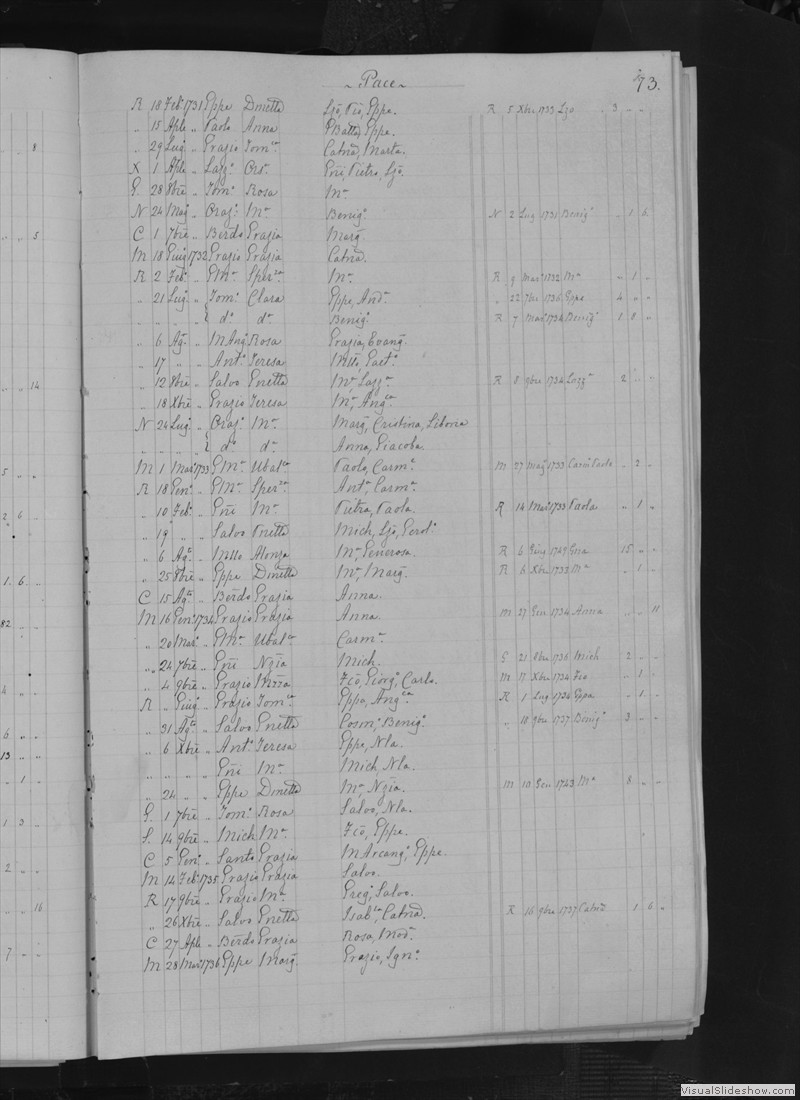 ~ Pace ~
73.
R 18 Feb. 1731 Eppe Dmetta Lzo, Eppa. R 5 Xbr 1733 Lzo 3 - -
„ 15 Aple „ Paolo Anna Batta, Eppa.
„ 29 Lug. „ Grazio Catna, Marta.
X 1 Aple „ Lazz. Pietro, Lzo.
G. 28 8bre „ Tom. Rosa Ma.
N 24 Mag. „ Oraz. Ma. Benig. N 2 Lug 1731 Benig. „ 1 6.
C 1 7bre „ Berdo Grazia Marg.
M 18 Giug 1732 Grazio Grazia Catna.
R 2 Feb. „ GMa. Sperza Ma. R 9 Mar. 1732 Ma „ 1 „
„ 21 Lug. „ Tom. Clara Eppe, And. „ 22 7bre 1736 Eppe 4 „ „
„ „ „ „ do. do. Benig. R 7 Mar. 1734 Benig. 1 8 „
„ 6 Ag. „ MAng. Rosa Grazia, Evang.
„ 17 „ „ Ant. Teresa Gaet.
„ 12 8bre „ Salvo Enetta Ma, Lazz. R 8 9bre 1734 Lazz. 2 „ „
„ 18 Xbre „ Grazio Teresa Ma, Angca.
N 24 Lug. „ Oraz. Ma. Marg, Cristina, Liboria
„ „ „ „ do. do. Anna, Giacoba.
M 1 Mar. 1733 GMa. Ubalca Paolo, Carm. M 27 Mag. 1733 Carm. Paolo „ 2 „
R 18 Gen. „ GMa. Sperza Anta, Carma.
„ 10 Feb. „ Gni Ma. Pietra, Paola. R 14 Mar. 1733 Paola „ 1 „
„ 19 „ „ Salvo Mich, Lzo, Gerol.
„ 6 Ag. „ Alonza Ma, Generosa. R 6 Giug 1747 15 „ „
„ 25 8bre „ Eppe Dmetta Ma, Marg. R 6 Xbre 1733 Ma „ 1 „
C 15 Ag. „ Berdo Grazia Anna.
M 16 Gen. 1734 Grazio Grazia Anna. M 27 Gen 1734 Anna „ „ 11
„ 20 Mar. „ GMa. Ubalca Carma.
„ 24 7bre „ Gni Nzia Mich. G 21 1736 Mich 2 „ „
„ 4 9bre „ Grazio Fco, Giorg, Carlo. M 17 Xbre 1734 Fco „ 1 „
R „ Giug. „ Grazio Eppa, Angca. R 1 Lug 1734 Eppa „ 1 „
„ 31 Ag. „ Salvo Enetta Cosm, Benig. „ 18 9bre 1737 Benig. 3 „ „
„ 6 Xbre „ Ant. Teresa Eppa, Nla.
„ „ „ „ Gni Ma. Mich, Nla.
„ 24 „ „ Eppe Dmetta Ma, Nzia. M 10 Gen 1743 Ma 8 „ „
G. 1 7bre „ Tom. Rosa Salvo, Nla.
S. 14 9bre „ Mich Ma. Fco, Eppa.
C 5 Gen. „ Santo Grazia MArcang, Eppe.
M 14 Feb. 1735 Grazio Grazia Salvo.
R 17 9bre „ Grazio Ma. Greg, Salvo.
„ 26 Xbre „ Salvo Enetta Isabla, Catna. R 16 9bre 1737 Catna 1 6 „
C 27 Aple „ Berdo Grazia Rosa, Mod.
M 28 Mar. 1736 Eppe Marg Grazio, Ign.
8
5
14
5 „
2 6 „
1 6 „
82
4
6
13
1
1 3
2
16
7
VisualSlideshow.com